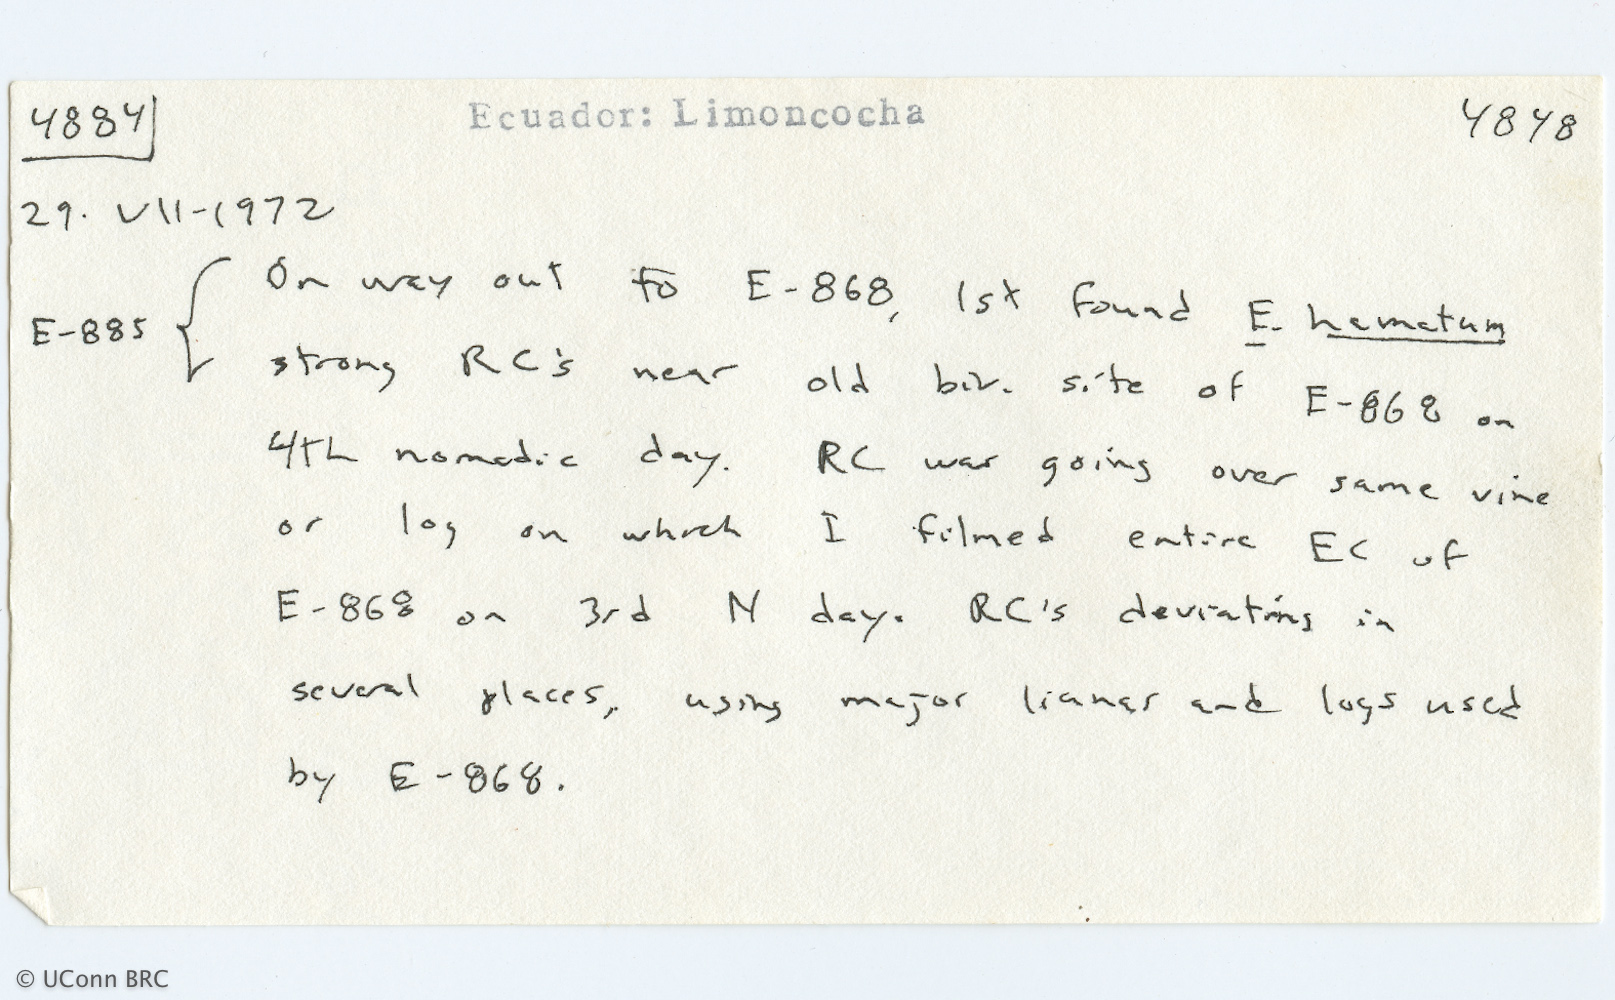 4884 Ecuador: Limoncocha 4848
29. VII-1972
On way out to E-868, 1st found E. hamatum
E-885 strong RC's near old biv. site of E-868 on
4th nomadic day. RC was going over same vine
or log on which I filmed entire EC of
E-868 on 3rd N day. RC's deviating in
several places, using major lianas and logs used
by E-868.
© UConn BRC